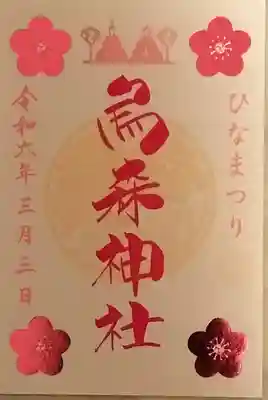 ひなまつり
烏森神社
令和六年三月三日